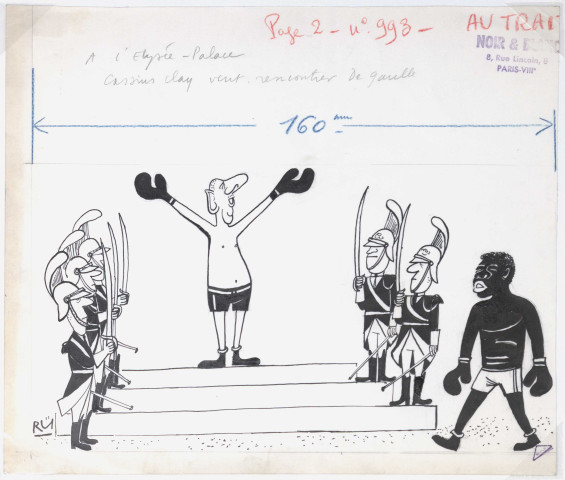 Page 2 - n° 993 -
AU TRAIT
NOIR & BLANC
8, Rue Lincoln, 8
PARIS-VIIIe
A l'Elysée - Palace
Cassius clay veut rencontrer De gaulle
160 mm
RÜ